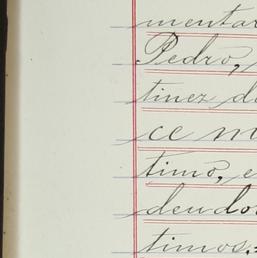 mentar
Pedro,
tinez d
ce m
timo, e
deudo
timos.=